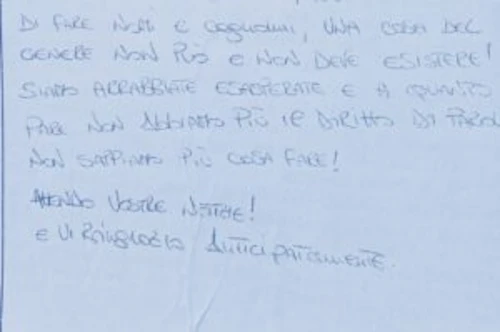 DI FARE NOMI E COGNOMI, UNA COSA DEL
GENERE NON PUÒ E NON DEVE ESISTERE!
SIAMO ARRABBIATE ESASPERATE E A QUANTO
PARE NON ABBIAMO PIÙ IL DIRITTO DI PAROL
NON SAPPIAMO PIÙ COSA FARE!
ATTENDO VOSTRE NOTIZIE!
E VI RINGRAZIO ANTICIPATAMENTE.